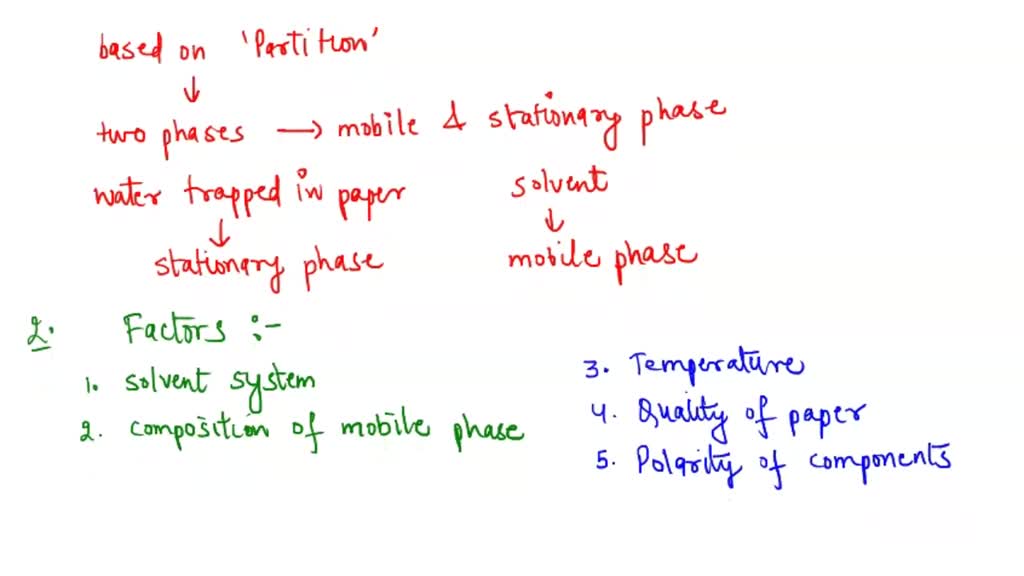 based on 'Partition'
↓
two phases → mobile & stationary phase
water trapped in paper
↓
stationary phase
solvent
↓
mobile phase
2. Factors :-
1. solvent system
2. composition of mobile phase
3. Temperature
4. Quality of paper
5. Polarity of components